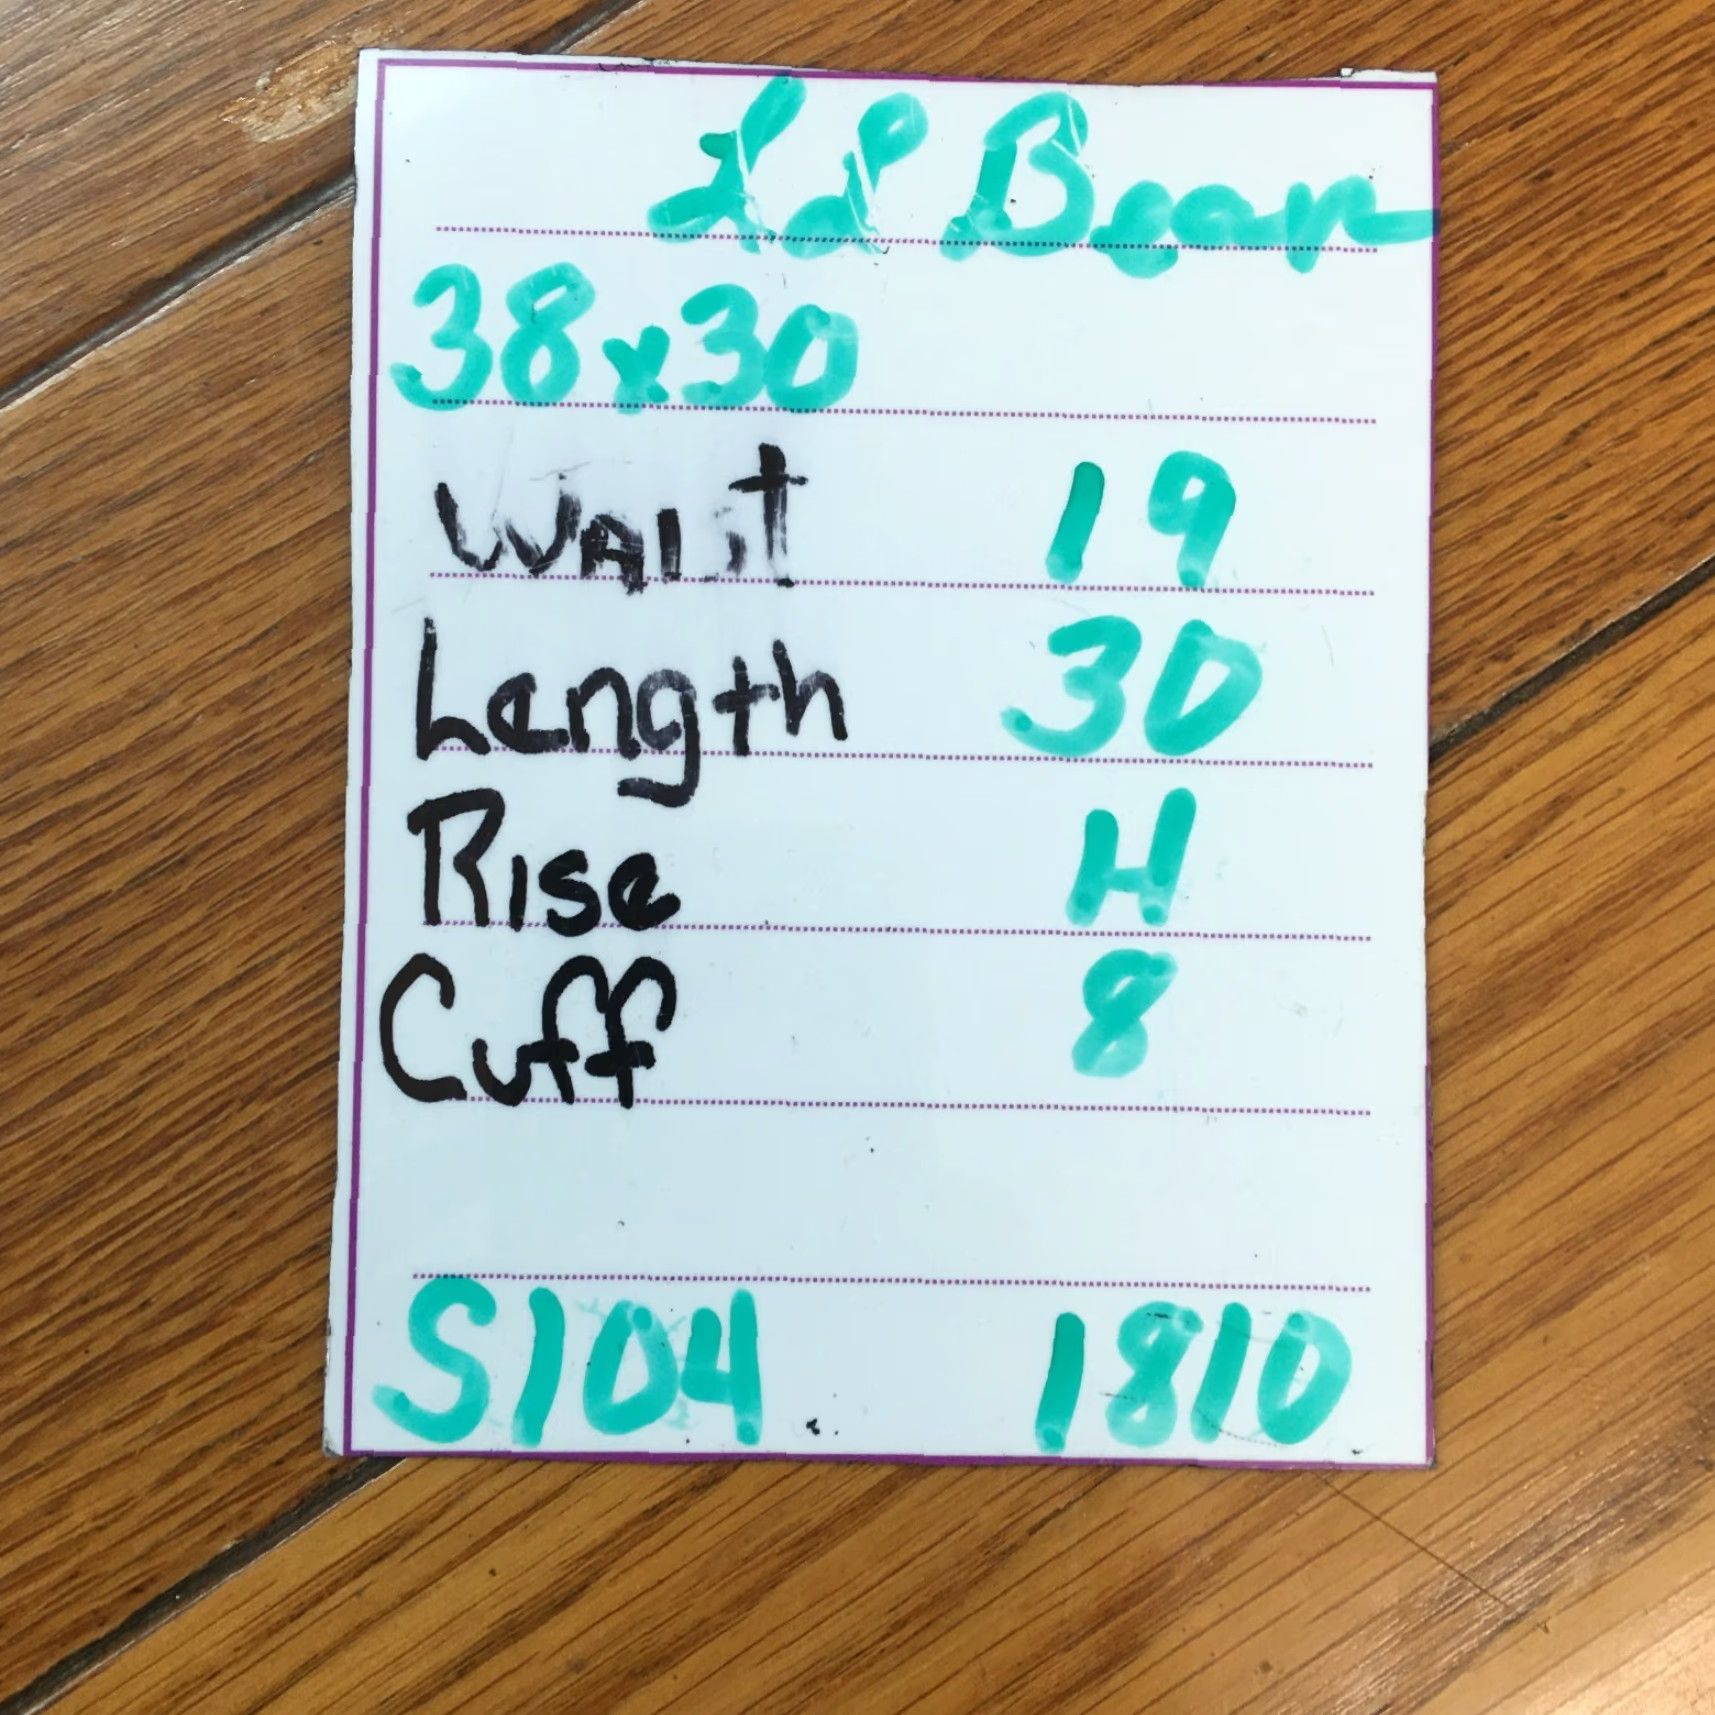 LL Bean
38x30
Waist 19
Length 30
Rise H
Cuff 8
S104 1810